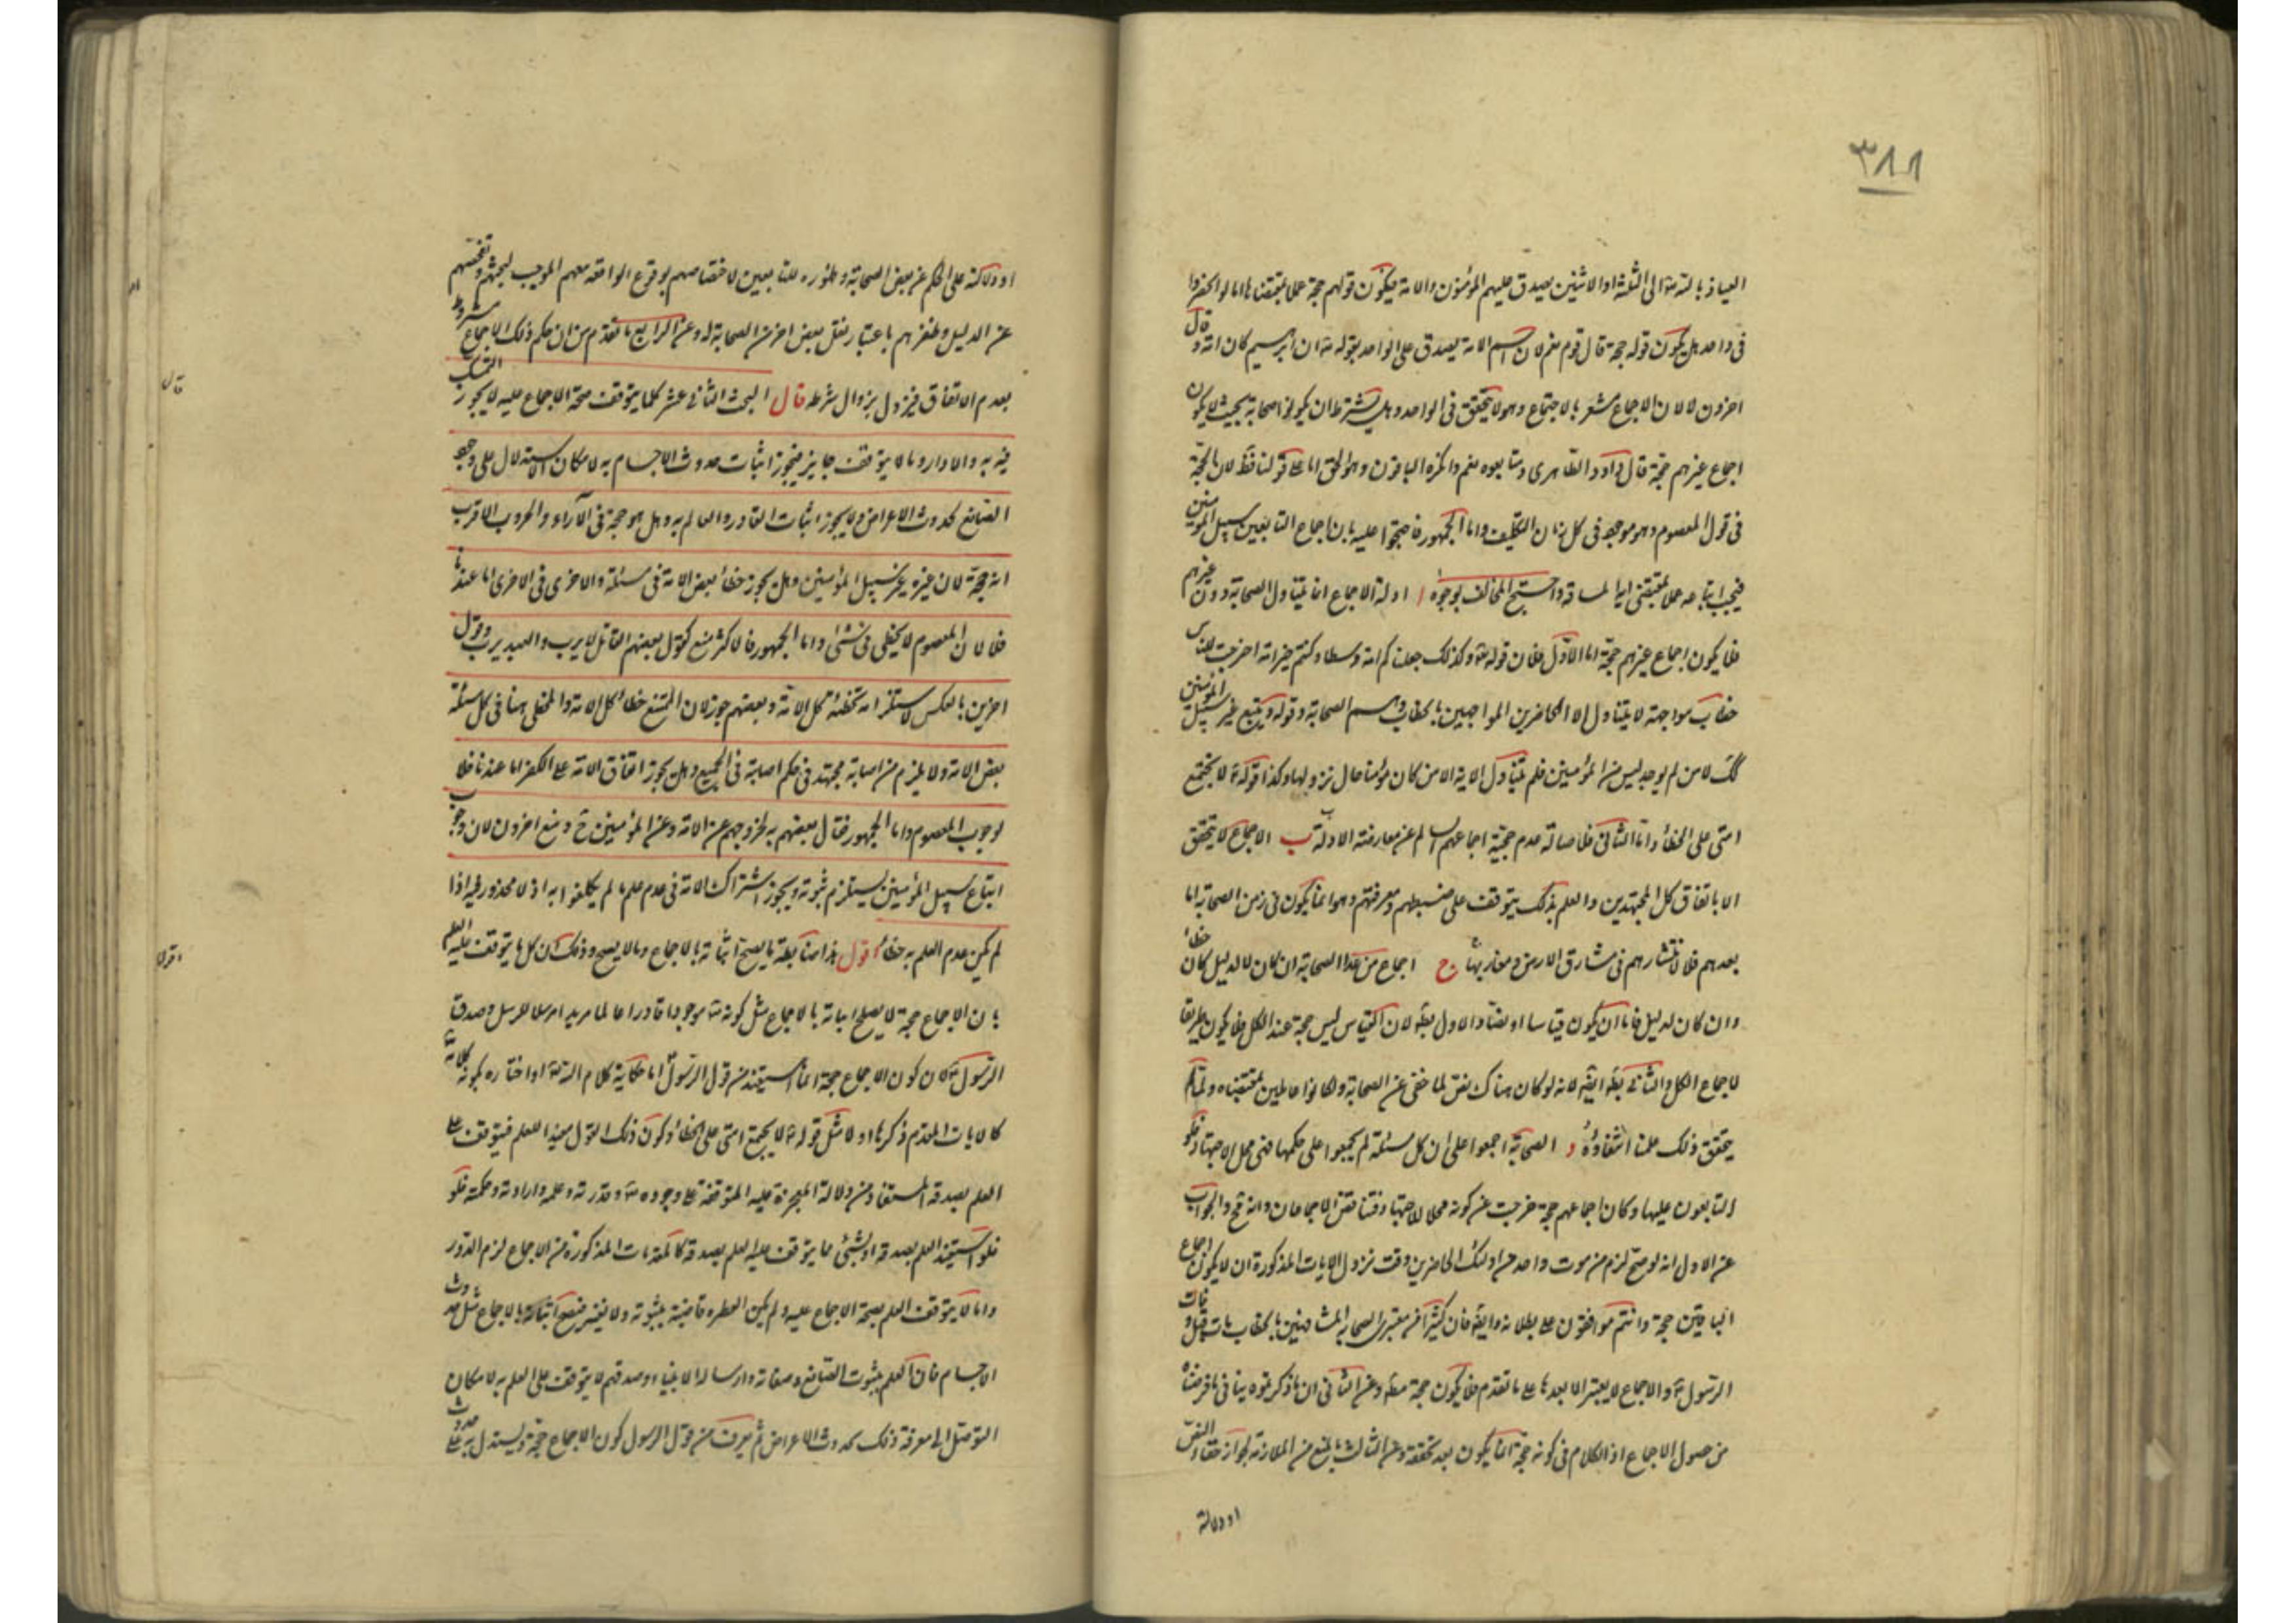 ٣٨٨
العياذ بالله تعالى الى الثلثة او الاثنين يصدق عليهم المؤمنون والامة فيكون قولهم حجة عملا بمقتضاها اما لو انحصروا
فى واحد هل يكون قوله حجة قال قوم نعم لان اسم الامة يصدق على الواحد بقوله تع ان ابرهيم كان امة وقال
اخرون لا لان الاجماع مشعر بالاجتماع وهو لا يتحقق فى الواحد وهل يشترط ان يكونوا صحابة بحيث لا يكون
اجماع غيرهم حجة قال داود الظاهرى ومتابعوه نعم وانكره الباقون وهو الحق اما على قولنا فظ لان الحجة
فى قول المعصوم وهو موجود فى كل زمان التكليف واما الجمهور فاحتجوا عليه بان اجماع التابعين سبيل المؤمنين
فيجب اتباعه عملا بمقتضى اية المشاقة واحتج المخالف بوجوه ا ادلة الاجماع انما يتناول الصحابة دون غيرهم
فلا يكون اجماع غيرهم حجة اما الاول فلان قوله تع وكذلك جعلناكم امة وسطا وكنتم خير امة اخرجت للناس
خطاب مواجهة لا يتناول الا الحاضرين المواجهين بالخطاب وهم الصحابة وقوله ويتبع غير سبيل المؤمنين
كك لان من لم يوجد ليس من المؤمنين فلم يتناول الاية الا من كان مؤمنا حال نزولها وكذا قوله لا يجتمع
امتى على الخطأ واما الثانى فلاصالة عدم حجية اجماعهم السالم عن معارضة الادلة ب الاجماع لا يتحقق
الا باتفاق كل المجتهدين والعلم بذلك يتوقف على ضبطهم ومعرفتهم وهو انما يكون فى زمن الصحابة اما
بعدهم فلا لانتشارهم فى مشارق الارض ومغاربها ج اجماع من عدا الصحابة ان كان لا لدليل كان خطأ
وان كان لدليل فاما ان يكون قياسا او نصا والاول بط لان القياس ليس حجة عند الكل فلا يكون طريقا
لاجماع الكل والثانى بط ايض لانه لو كان هناك نص لما خفى عن الصحابة ولكانوا عاملين بمقتضاه ولما لم
يتحقق ذلك علمنا انتفاؤه د الصحابة اجمعوا على ان كل مسئلة لم يجمعوا على حكمها فهى محل الاجتهاد فلو
التابعون عليها وكان اجماعهم حجة خرجت عن كونه محلا للاجتهاد فتناقض الاجماعان وانه قح والجواب
عن الاول انه لو صح لزم من موت واحد من اولئك الحاضرين وقت نزول الايات المذكورة ان لا يكون اجماع
الباقين حجة وانتم موافقون على بطلانه وايض فان كثيرا من معتبرى الصحابة المشافهين بالخطاب مات قبل وفات
الرسول والاجماع لا يعتبر الا بعدها على ما تقدم فلا يكون حجة مط وعن الثانى ان ما ذكرتموه ينافى ما فرضناه
من حصول الاجماع اذ الكلام فى كونه حجة انما يكون بعد تحققه وعن الثالث بالمنع من الملازمة لجواز خفاء النص
او دلالته
او دلالته على الحكم عن بعض الصحابة وظهوره للتابعين لاختصاصهم بوقوع الواقعة معهم الموجب لبحثهم وتفحصهم
عن الدليل وظفرهم باعتبار نقل بعض اخر من الصحابة له وعن الرابع ما تقدم من ان حكم ذلك الاجماع مشروط
بعدم الاتفاق فيزول بزوال شرطه قال البحث الثانى عشر كلما يتوقف صحة الاجماع عليه لا يجوز التمسك
فيه به والا دار وما لا يتوقف جايز فيجوز اثبات حدوث الاجسام به لامكان الاستدلال على وجود
الصانع بحدوث الاعراض ولا يجوز اثبات القادر والعالم به وهل هو حجة فى الآراء والحروب الاقرب
انه حجة لان غيره غير سبيل المؤمنين وهل يجوز خطأ بعض الامة فى مسئلة والاخرى فى الاخرى اما عندنا
فلا لان المعصوم لا يخطى فى شئ واما الجمهور فالاكثر منع كقول بعضهم القاتل لا يرث والعبد يرث وقول
اخرين بالعكس لاستلزامه تخطئة كل الامة وبعضهم جوز لان الممتنع خطأ كل الامة والمخطى هنا فى كل مسئلة
بعض الامة ولا يلزم من اصابة مجتهد فى حكم اصابته فى الجميع وهل يجوز اتفاق الامة على الكفر اما عندنا فلا
لوجوب المعصوم واما الجمهور فقال بعضهم به لخروجهم عن الامة وعن المؤمنين ح ومنع اخرون لان وجوب
اتباع سبيل المؤمنين يستلزم ثبوته ويجوز اشتراك الامة فى عدم علم ما لم يكلفوا به اذ لا محذور فيه اذا
لم يكن عدم العلم به خطأ اقول هذا ضابطة ما يصح اثباته بالاجماع وما لا يصح وذلك ان كل ما يتوقف عليه العلم
بان الاجماع حجة لا يصلح اثباته بالاجماع مثل كونه تع موجودا قادرا عالما مريدا مرسلا للرسل وصدق
الرسول لان كون الاجماع حجة انما استفيد من قول الرسول اما حكاية كلام الله تع او اخباره بكونه كلامه
كالايات المقدم ذكرها او لا مثل قوله لا يجتمع امتى على الخطأ وكون ذلك القول مفيدا للعلم فيتوقف على
العلم بصدقه المستفاد من دلالة المعجزة عليه المتوقفة على وجوده تع وقدرته وعلمه وارادته وحكمته فلو
فلو استفيد العلم بصدقه او بشئ مما يتوقف عليه العلم بصدقه كالمقدمات المذكورة من الاجماع لزم الدور
واما لا يتوقف العلم بصحة الاجماع عليه ولم يكن الفطرة قاضية بثبوته ولا بغيره فيصح اثباته بالاجماع مثل حدوث
الاجسام فان العلم بثبوت الصانع وصفاته وارساله الانبياء وصدقهم لا يتوقف على العلم به لامكان
التوصل الى معرفة ذلك بحدوث الاعراض ثم يعرف من قول الرسول كون الاجماع حجة ويستدل به على حدوث
قال
اقول